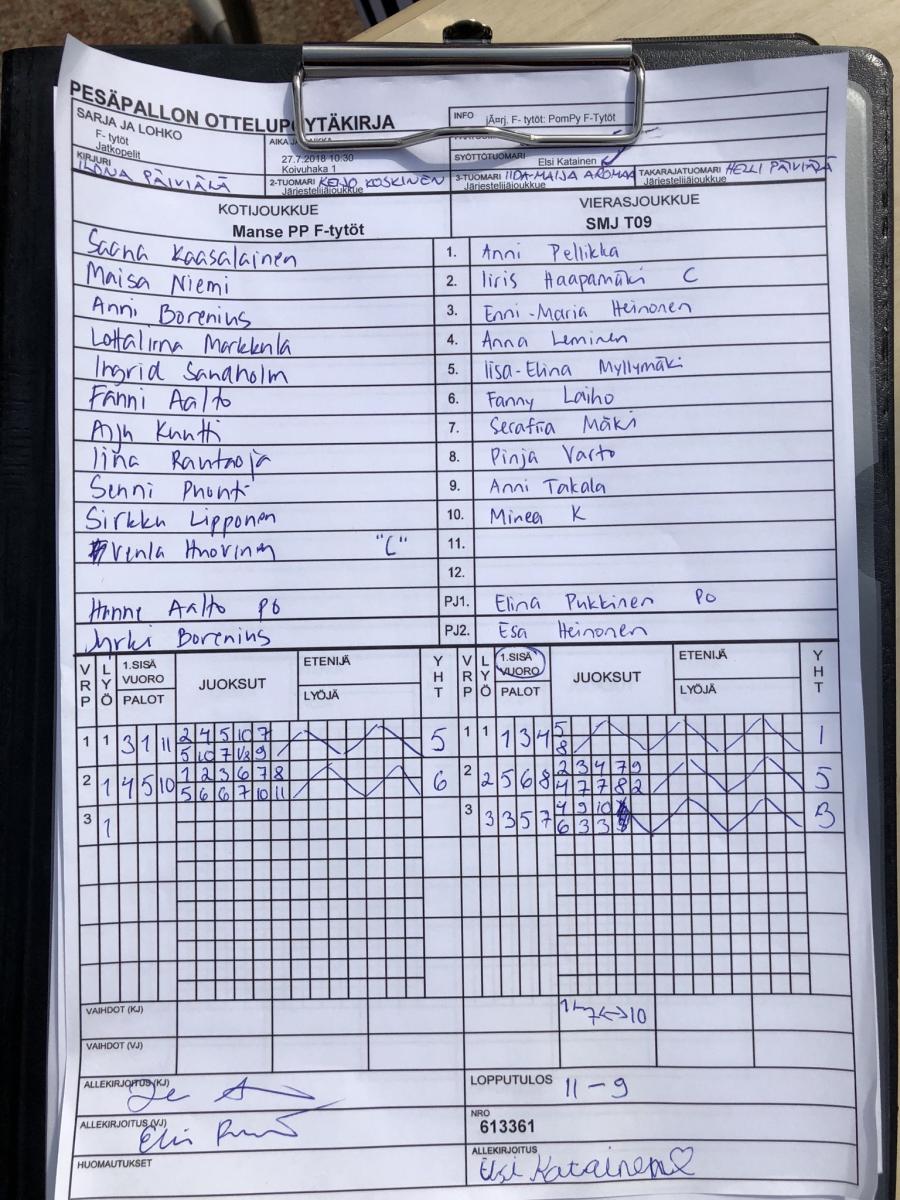 PESÄPALLON OTTELUPÖYTÄKIRJA
SARJA JA LOHKO
F- tytöt
Jatkopelit
27.7.2018 10:30
Koivuhaka 1
INFO jÃ¤rj. F- tytöt: PomPy F-Tytöt
SYÖTTÖTUOMARI Elsi Katainen
KIRJURI
ILONA PÄIVIÄLÄ
2-TUOMARI KEIJO KOSKINEN
Järjestelijäjoukkue
3-TUOMARI IIDA-MAIJA AROMAA
Järjestelijäjoukkue
TAKARAJATUOMARI HELLI PÄIVIÄLÄ
Järjestelijäjoukkue
KOTIJOUKKUE VIERASJOUKKUE
Manse PP F-tytöt SMJ T09
Saana Kaasalainen 1. Anni Pellikka
Maisa Niemi 2. Iiris Haapamäki C
Anni Borenius 3. Enni-Maria Heinonen
Lottaliina Markkula 4. Anna Leminen
Ingrid Sandholm 5. Iisa-Elina Myllymäki
Fanni Aalto 6. Fanny Laiho
Kuntti 7. Mäki
Iina Rautaoja 8. Pinja Varto
Senni 9. Anni Takala
Sirkku Lipponen 10. Minea K
Venla "C" 11.
12.
Aalto PJ1. Elina Pukkinen PO
Jyrki Borenius PJ2. Esa Heinonen
VRP LYÖ 1.SISÄ VUORO PALOT JUOKSUT ETENIJÄ LYÖJÄ YHT VRP LYÖ 1.SISÄ VUORO PALOT JUOKSUT ETENIJÄ LYÖJÄ YHT
1 1 3 1 11 2 4 5 10 7 5 1 1 1 3 4 5 1
5 10 7 9 8
2 1 4 5 10 1 2 3 6 7 8 6 2 2 5 6 8 2 3 4 7 9 5
5 6 6 7 10 11 4 7 7 8 2
3 1 3 3 3 5 7 4 9 10 3
6 3 3
VAIHDOT (KJ) 7↔10
VAIHDOT (VJ)
ALLEKIRJOITUS (KJ) LOPPUTULOS 11-9
ALLEKIRJOITUS (VJ) NRO
613361
HUOMAUTUKSET ALLEKIRJOITUS
Elsi Katainen♡